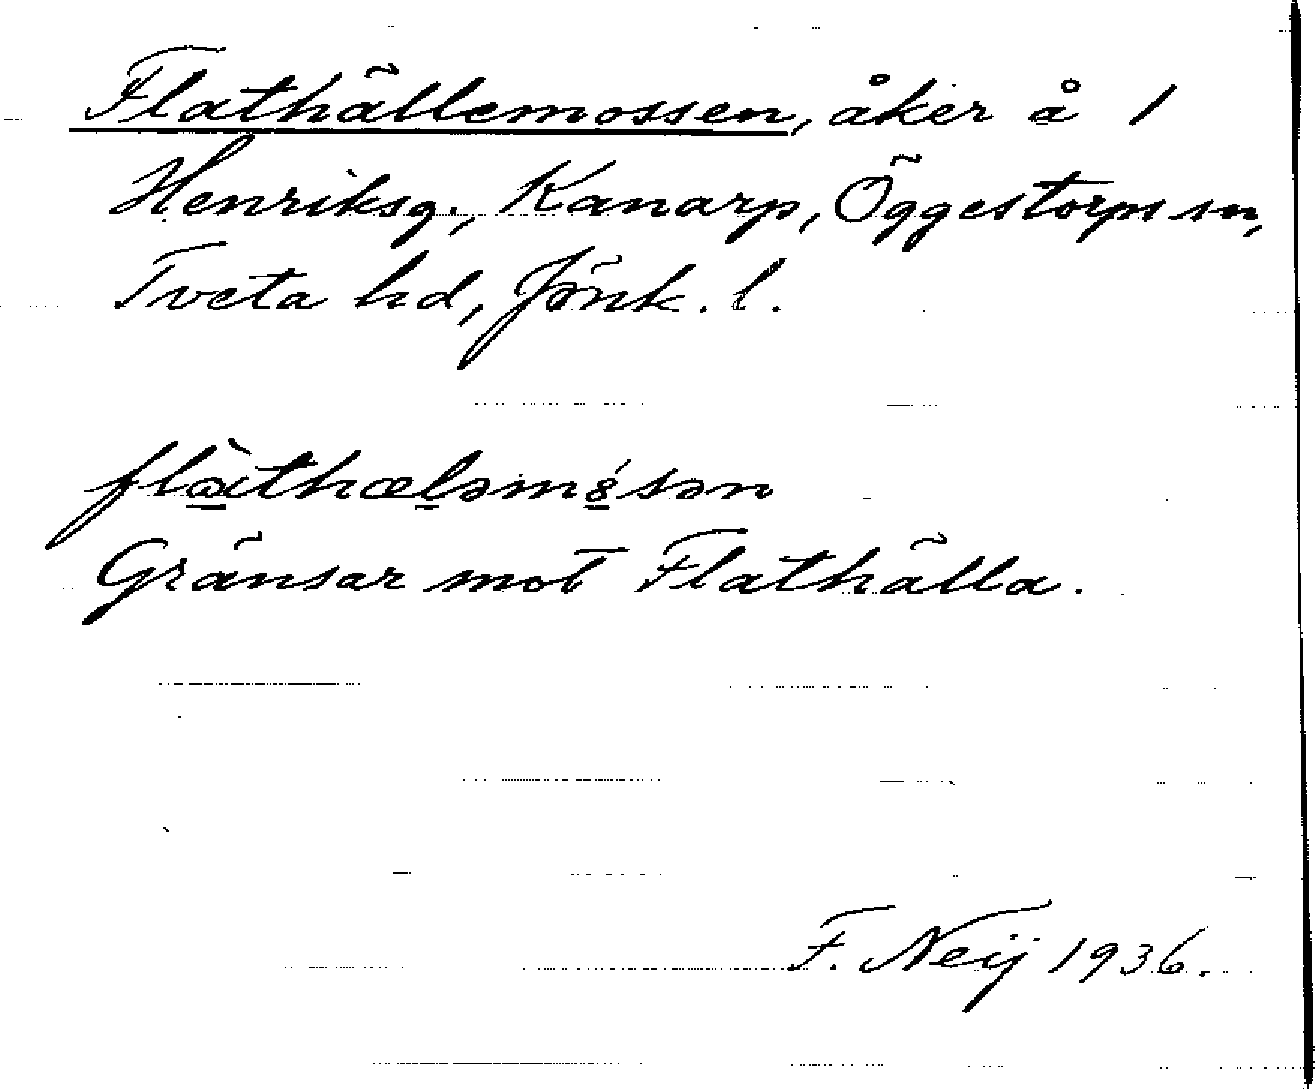 Flathällemossen, åker å 1
Henriksg., Kanarp, Öggestorps sn,
Tveta hd, Jönk. l.
Gränsar mot Flathälla.
F. Neij 1936.